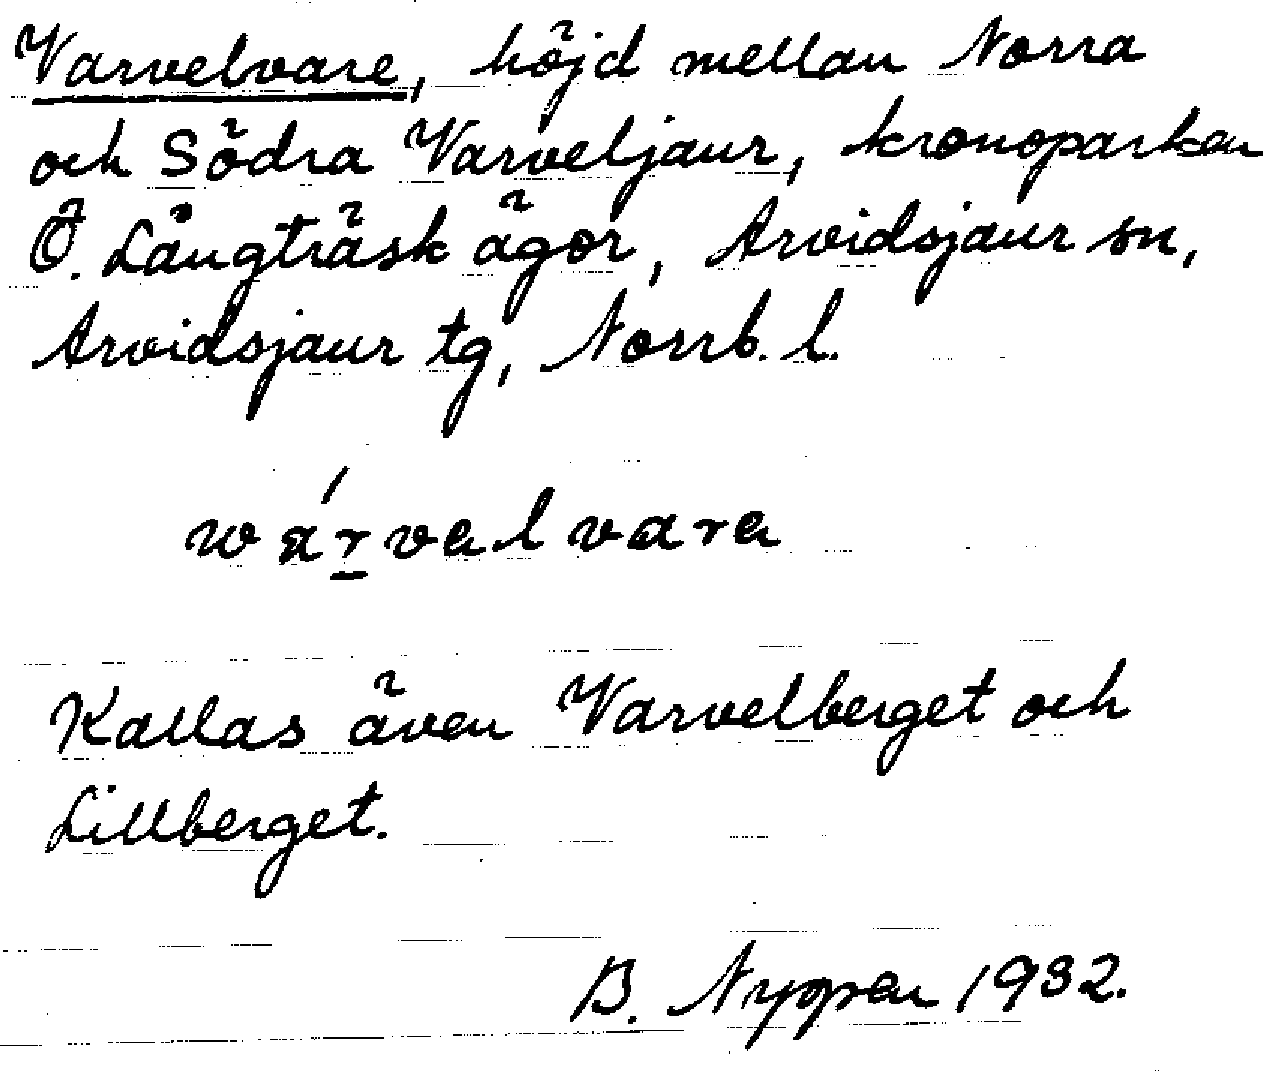 Varvelvare, höjd mellan Norra
och Södra Varveljaur, kronoparken
Ö. Långträsk ägor, Arvidsjaur sn,
Arvidsjaur tg, Norrb. l.
wárvalvara
Kallas även Varvelberget och
Lillberget.
B. Nyppen 1932.